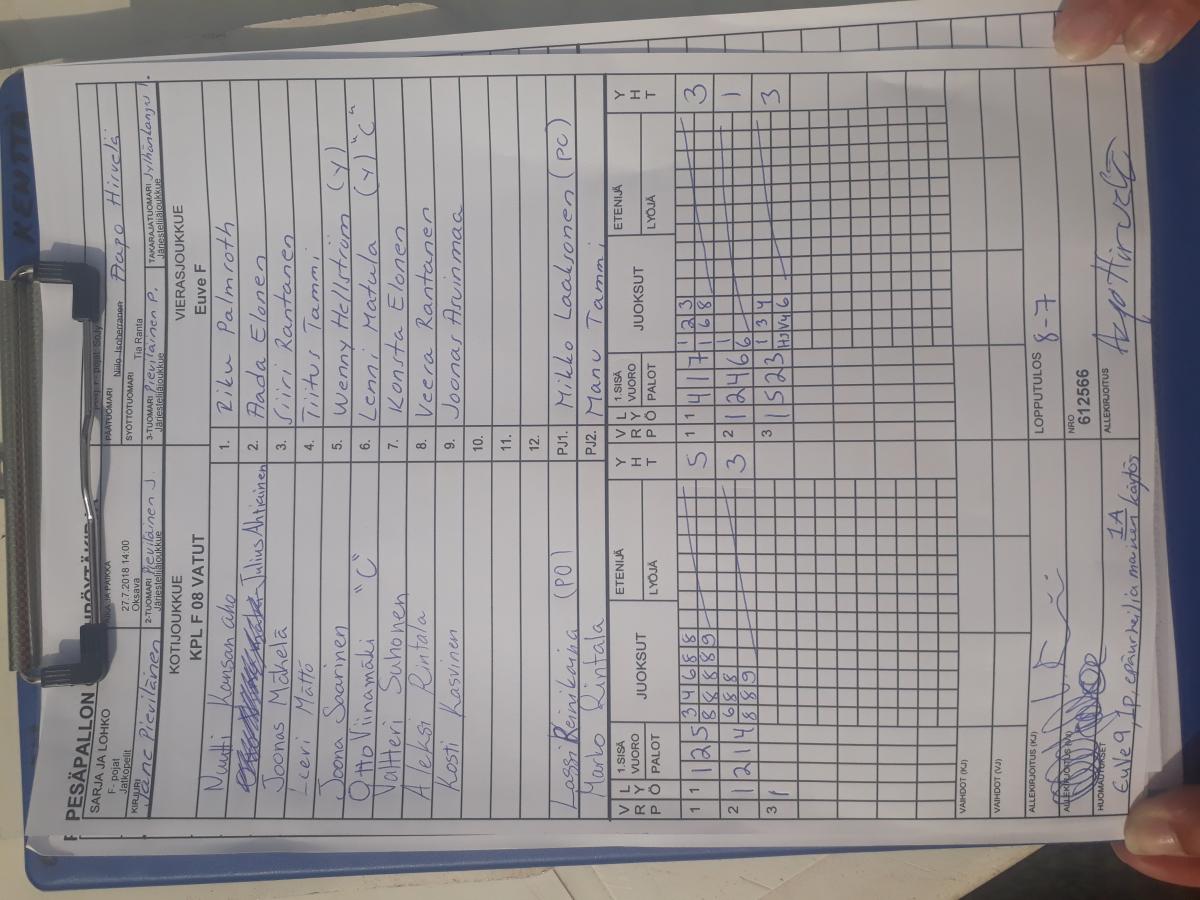 KENTTÄ
PESÄPALLON
SARJA JA LOHKO
F- pojat
Jatkopelit
AIKA JA PAIKKA
27.7.2018 14:00
Oksava
PÄÄTUOMARI Niilo Isoherranen
SYÖTTÖTUOMARI Tia Ranta Aapo Hirvelä
KIRJURI Jane Pieviläinen
2-TUOMARI Pieviläinen J.
Järjestelijäjoukkue
3-TUOMARI Pieviläinen P.
Järjestelijäjoukkue
TAKARAJATUOMARI
Järjestelijäjoukkue
KOTIJOUKKUE
KPL F 08 VATUT
VIERASJOUKKUE
Euve F
Nuutti Kansanaho 1. Riku Palmroth
Julius Ahtiainen 2. Aada Elonen
Joonas Mäkelä 3. Siiri Rantanen
Eeri Mättö 4. Tiitus Tammi
Jooma Saarinen 5. Wenny Hellström (Y)
Otto Viinamäki "C" 6. Lenni Matula (Y) "C"
Valtteri Suhonen 7. Konsta Elonen
Aleksi Rintala 8. Veera Rantanen
Kosti Kasvinen 9. Joonas Arvinmaa
10.
11.
12.
Lassi Reinikaina (PO) PJ1. Mikko Laaksonen (PC)
Marko Rintala PJ2. Manu Tammi
V R L Y P Ö 1.SISÄ VUORO PALOT JUOKSUT ETENIJÄ LYÖJÄ Y H T V R L Y P Ö 1.SISÄ VUORO PALOT JUOKSUT ETENIJÄ LYÖJÄ Y H T
1 1 1 2 5 3 4 6 8 8 5 1 1 4 1 7 1 2 3 3
8 8 8 8 9 1 6 8
2 1 2 1 4 6 8 8 3 2 1 2 4 6 6 1 1
8 8 9 6
3 1 3 1 5 2 3 1 3 4 3
HJ V4 6
VAIHDOT (KJ)
VAIHDOT (VJ)
ALLEKIRJOITUS (KJ)
LOPPUTULOS 8-7
ALLEKIRJOITUS (VJ)
NRO
612566
HUOMAUTUKSET
ALLEKIRJOITUS
EuVe 9, 1P, epäurheilia mainen käytös 1A